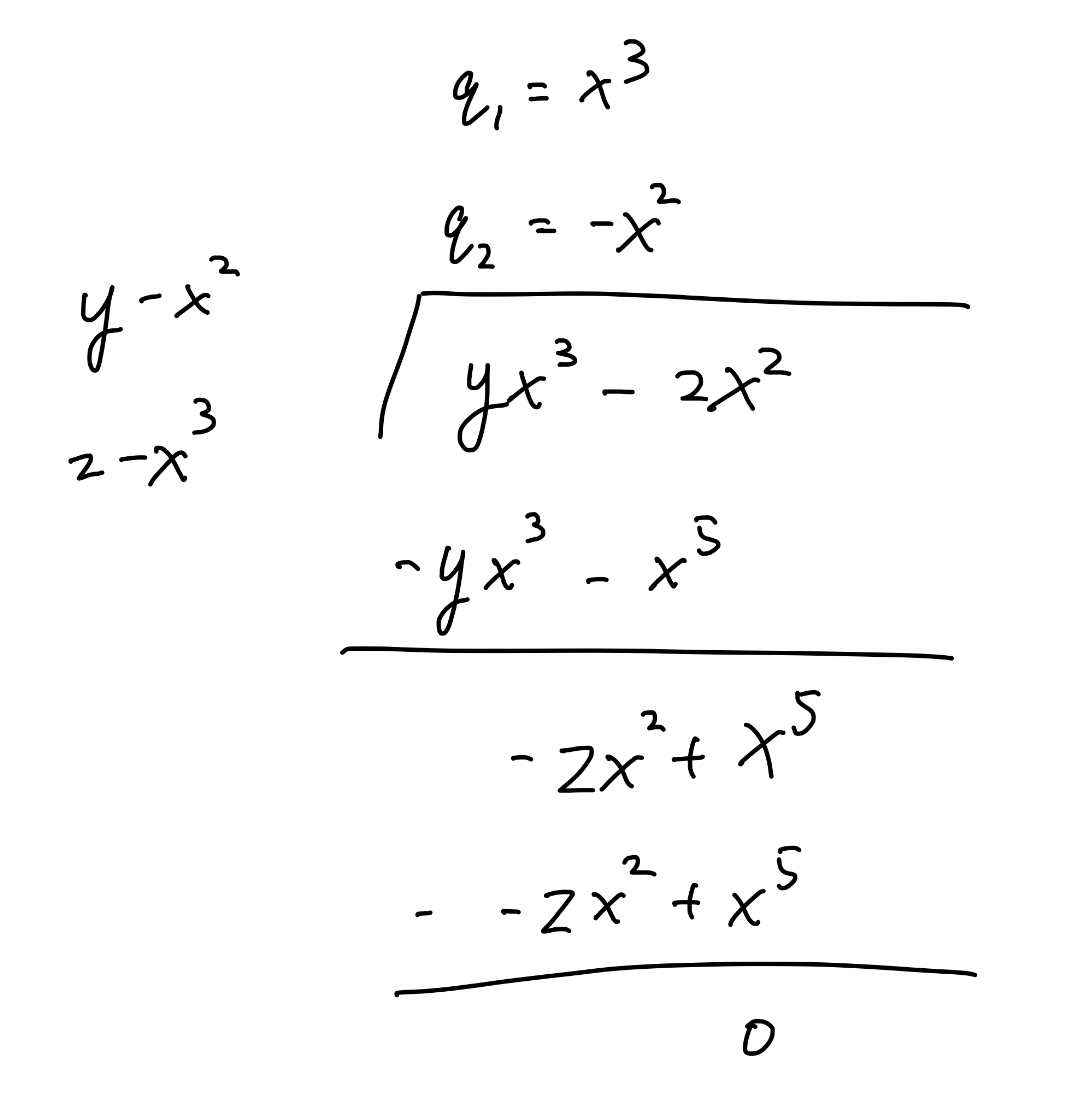 q₁ = x³
q₂ = -x²
y - x²
yx³ - zx²
z - x³
- yx³ - x⁵
- zx² + x⁵
- - zx² + x⁵
0